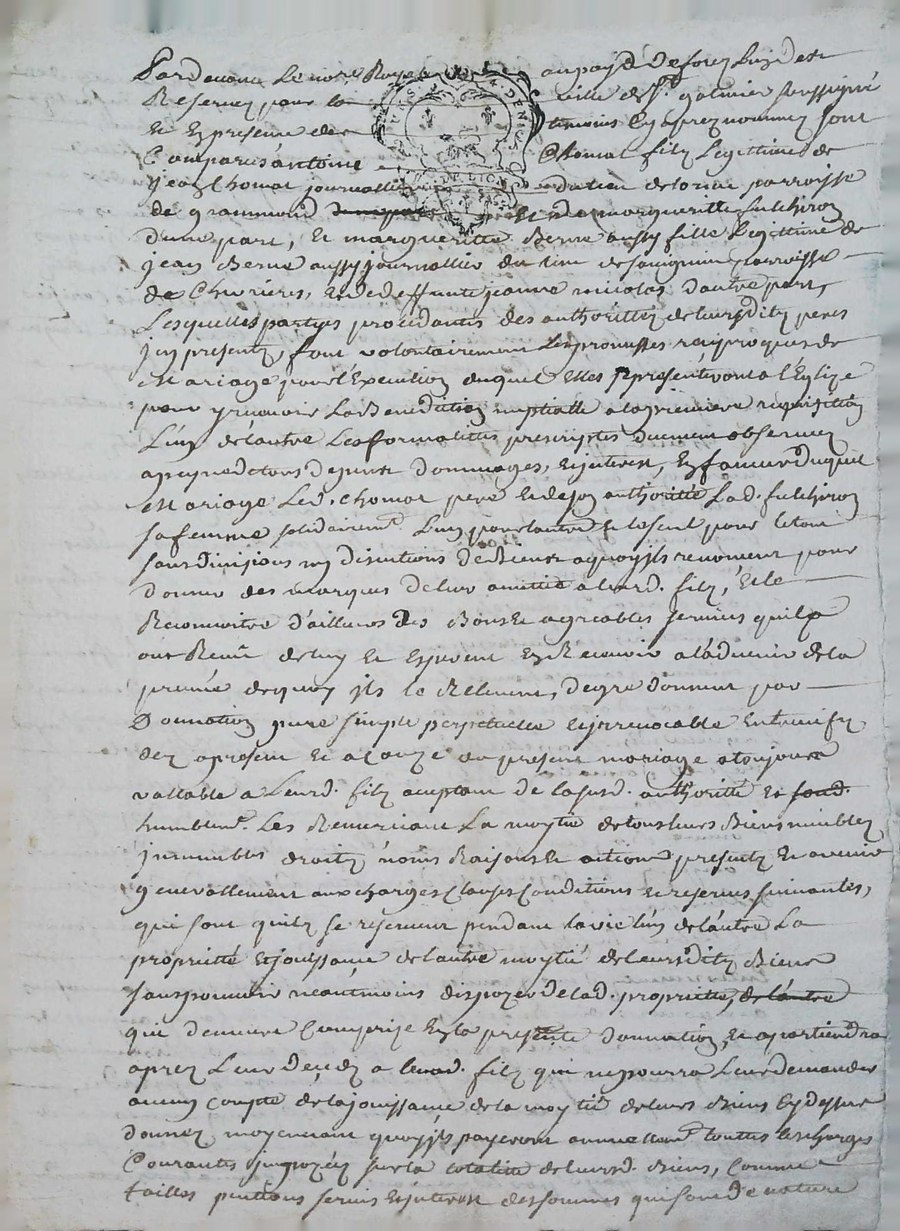 Pardevant Le no.re Royal au pays de forez
Reservez pour la ville de St galmier soussigné
Et En presence des temoins Cy aprez nommez sont
Comparus antoine Chomat filz Legittime de
jean Chomat journallier
de grammond margueritte fulchiron
d'une part, Et marguerite Berne aussy fille Legitime de
jean Berne aussy journallier du lieu de parroisse
de Chevrieres, Et de deffunte jeanne nicolas d'autre part,
Lesquelles partyes procedantes des authorittez de leursditz peres
jcy presentz, font volontairement Les promesses reciproques de
Mariage pour l'Execution duquel Elles se representeront a l'Eglize
pour y recevoir La Benediction nuptialle a la premiere requisition
L'un de l'autre Les formalittés prescriptes duement observées
a peyne de tous depens dommages, Et interest, En faveur duquel
Mariage Led. Chomat pere Et de son authoritté Lad. fulchiron
sa femme solidairemt L'un pour l'autre Et le seul pour le tout
sans divisions ny discutions de Biens a quoy jls renoncent pour
donner des marques de leur amittié a leurd. filz, Et le
Reconnoitre d'ailleurs des Bons Et agreables services qu'ilz
ont Receu de luy Et Esperent En Recevoir a l'advenir de la
preuve de quoy jls le Rellevent, de gré donnent par
Donnation pure simple perpetuelle Et jrrevocable Entre vifz
dez apresent Et a cauze du present mariage a toujours
vallable a Leurd. filz acceptant de lasusd. authoritté Et
humblemt. Les Remerciant La moytié de tous leurs Biens meubles
jmmeubles droitz noms Raisons Et actions presentz Et avenir
generallement aux charges Clauses Conditions Et reserves suivantes,
qui sont qu'ilz se reservent pendant la vie L'un de l'autre La
proprietté Et jouissance de l'autre moytié de leursditz Biens
sans pouvoir neantmoins dispozer de lad. proprietté, de l'autre
qui demeure Comprise En la presente donnation, Et apartiendra
aprez Leur decedz a leurd. filz qui ne pourra Leur demander
aucun compte de la jouissance de la moytié de leurs Biens Cy dessus
donnez moyennant quoy jls payeront annuellemt toutes les charges
Courantes jmpozées sur la totalité de leursd. Biens, Comme
tailles pentions servis Et jnterest des sommes qui sont de nature